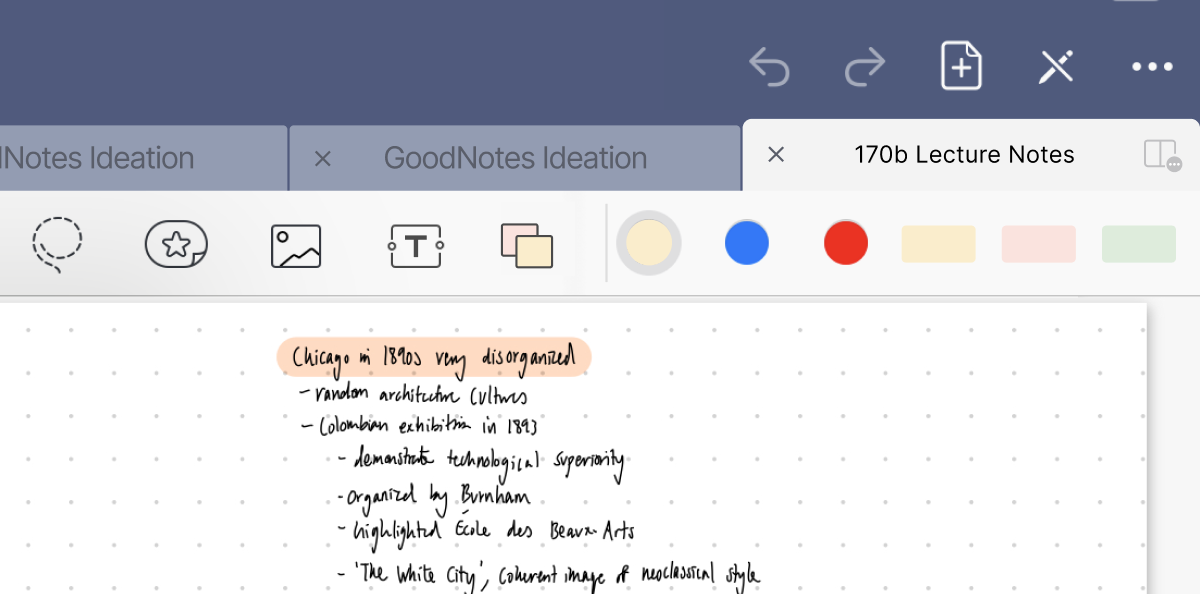 lNotes Ideation
GoodNotes Ideation
170b Lecture Notes
T
Chicago in 1890s very disorganized
- random architecture cultures
- Colombian exhibition in 1893
- demonstrate technological superiority
- organized by Burnham
- highlighted École des Beaux-Arts
- 'The White City', coherent image of neoclassical style